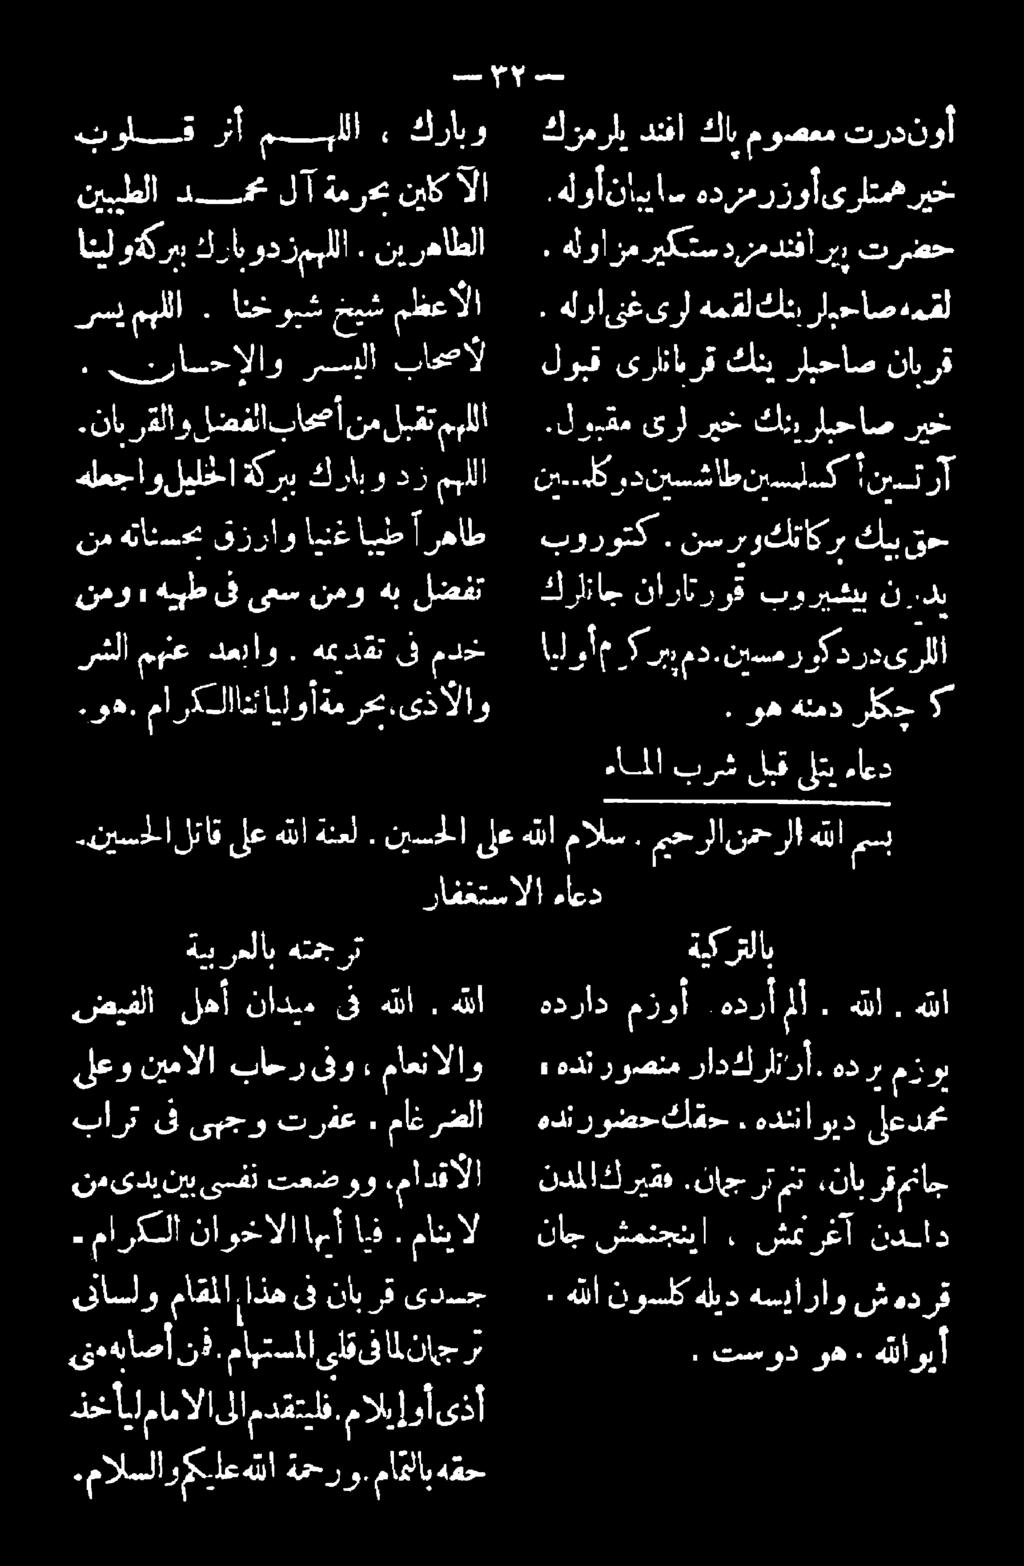 — ٣٢ —
أون‌درت معصوم پاك افند يلرمزك
خيرهمتلرى أوزرمزده سايبان أوله .
حضرت پير افندمز دستكيرمز اوله .
لقمه صاحبلرينك لقمه لرى غنى اوله .
قربان صاحبلر ينك قربانلرى قبول
خير صاحبلرينك خير لرى مقبول.
آرتسين أكسلمسين طاشسين دوكلمسين
حق بيك بركاتك ويرسن . كتوروب
يدرن بيشيروب قورتاران جانلرك
اللرى درد كورمسين . دم پير كرم أوليا
كر چكلر دمنه هو .
وبارك ، اللهم أنر قلوب
الآكلين بحرمة آل محمد الطيبين
الطاهرين . اللهم زد وبارك ببركة ولينا
الأعظم شيخ شيوخنا . اللهم يسر
لأصحاب اليسر والإحسان .
اللهم تقبل من أصحاب الفضل والقربان.
اللهم زد وبارك ببركة الخليل واجعله
طاهراً طيبا غنيا وارزق بحسناته من
تفضل به ومن سعى فى طهيه ، ومن
خدم فى تقديمه . وابعد عنهم الشر
والأذى، بحرمة أوليائنا الكرام . هو.
دعاء يتلى قبل شرب الماء
بسم الله الرحمن الرحيم . سلام الله على الحسين . لعنة الله على قاتل الحسين.
دعاء الاستغفار
بالتركية
الله . الله . ألم أرده أوزم دارده
يوزم يرده . أرنلرك دار منصورنده ،
محمد على ديواننده . حقك حضورنده
جانم قربان، تنم ترجمان. فقيرك المدن
دلدن آغرنمش ، اينجنمش جان
قردەش وارايسه ديله كلسون الله .
أيوالله . هو دوست .
ترجمته بالعربية
الله . الله فى ميدان أهل الفيض
والانعام ، وفى رحاب الامين وعلى
الضرغام . عفرت وجهى فى تراب
الأقدام، ووضعت نفسى بين يدى من
لاينام . فيا أيها الاخوان الكرام -
جسدى قربان فى هذا المقام ولسانى
ترجمان لما فى قلبى المستهام . فمن أصابه منى
أذى أو إيلام . فليتقدم الى الامام ليأخذ
حقه بالتمام . ورحمة الله عليكم والسلام .